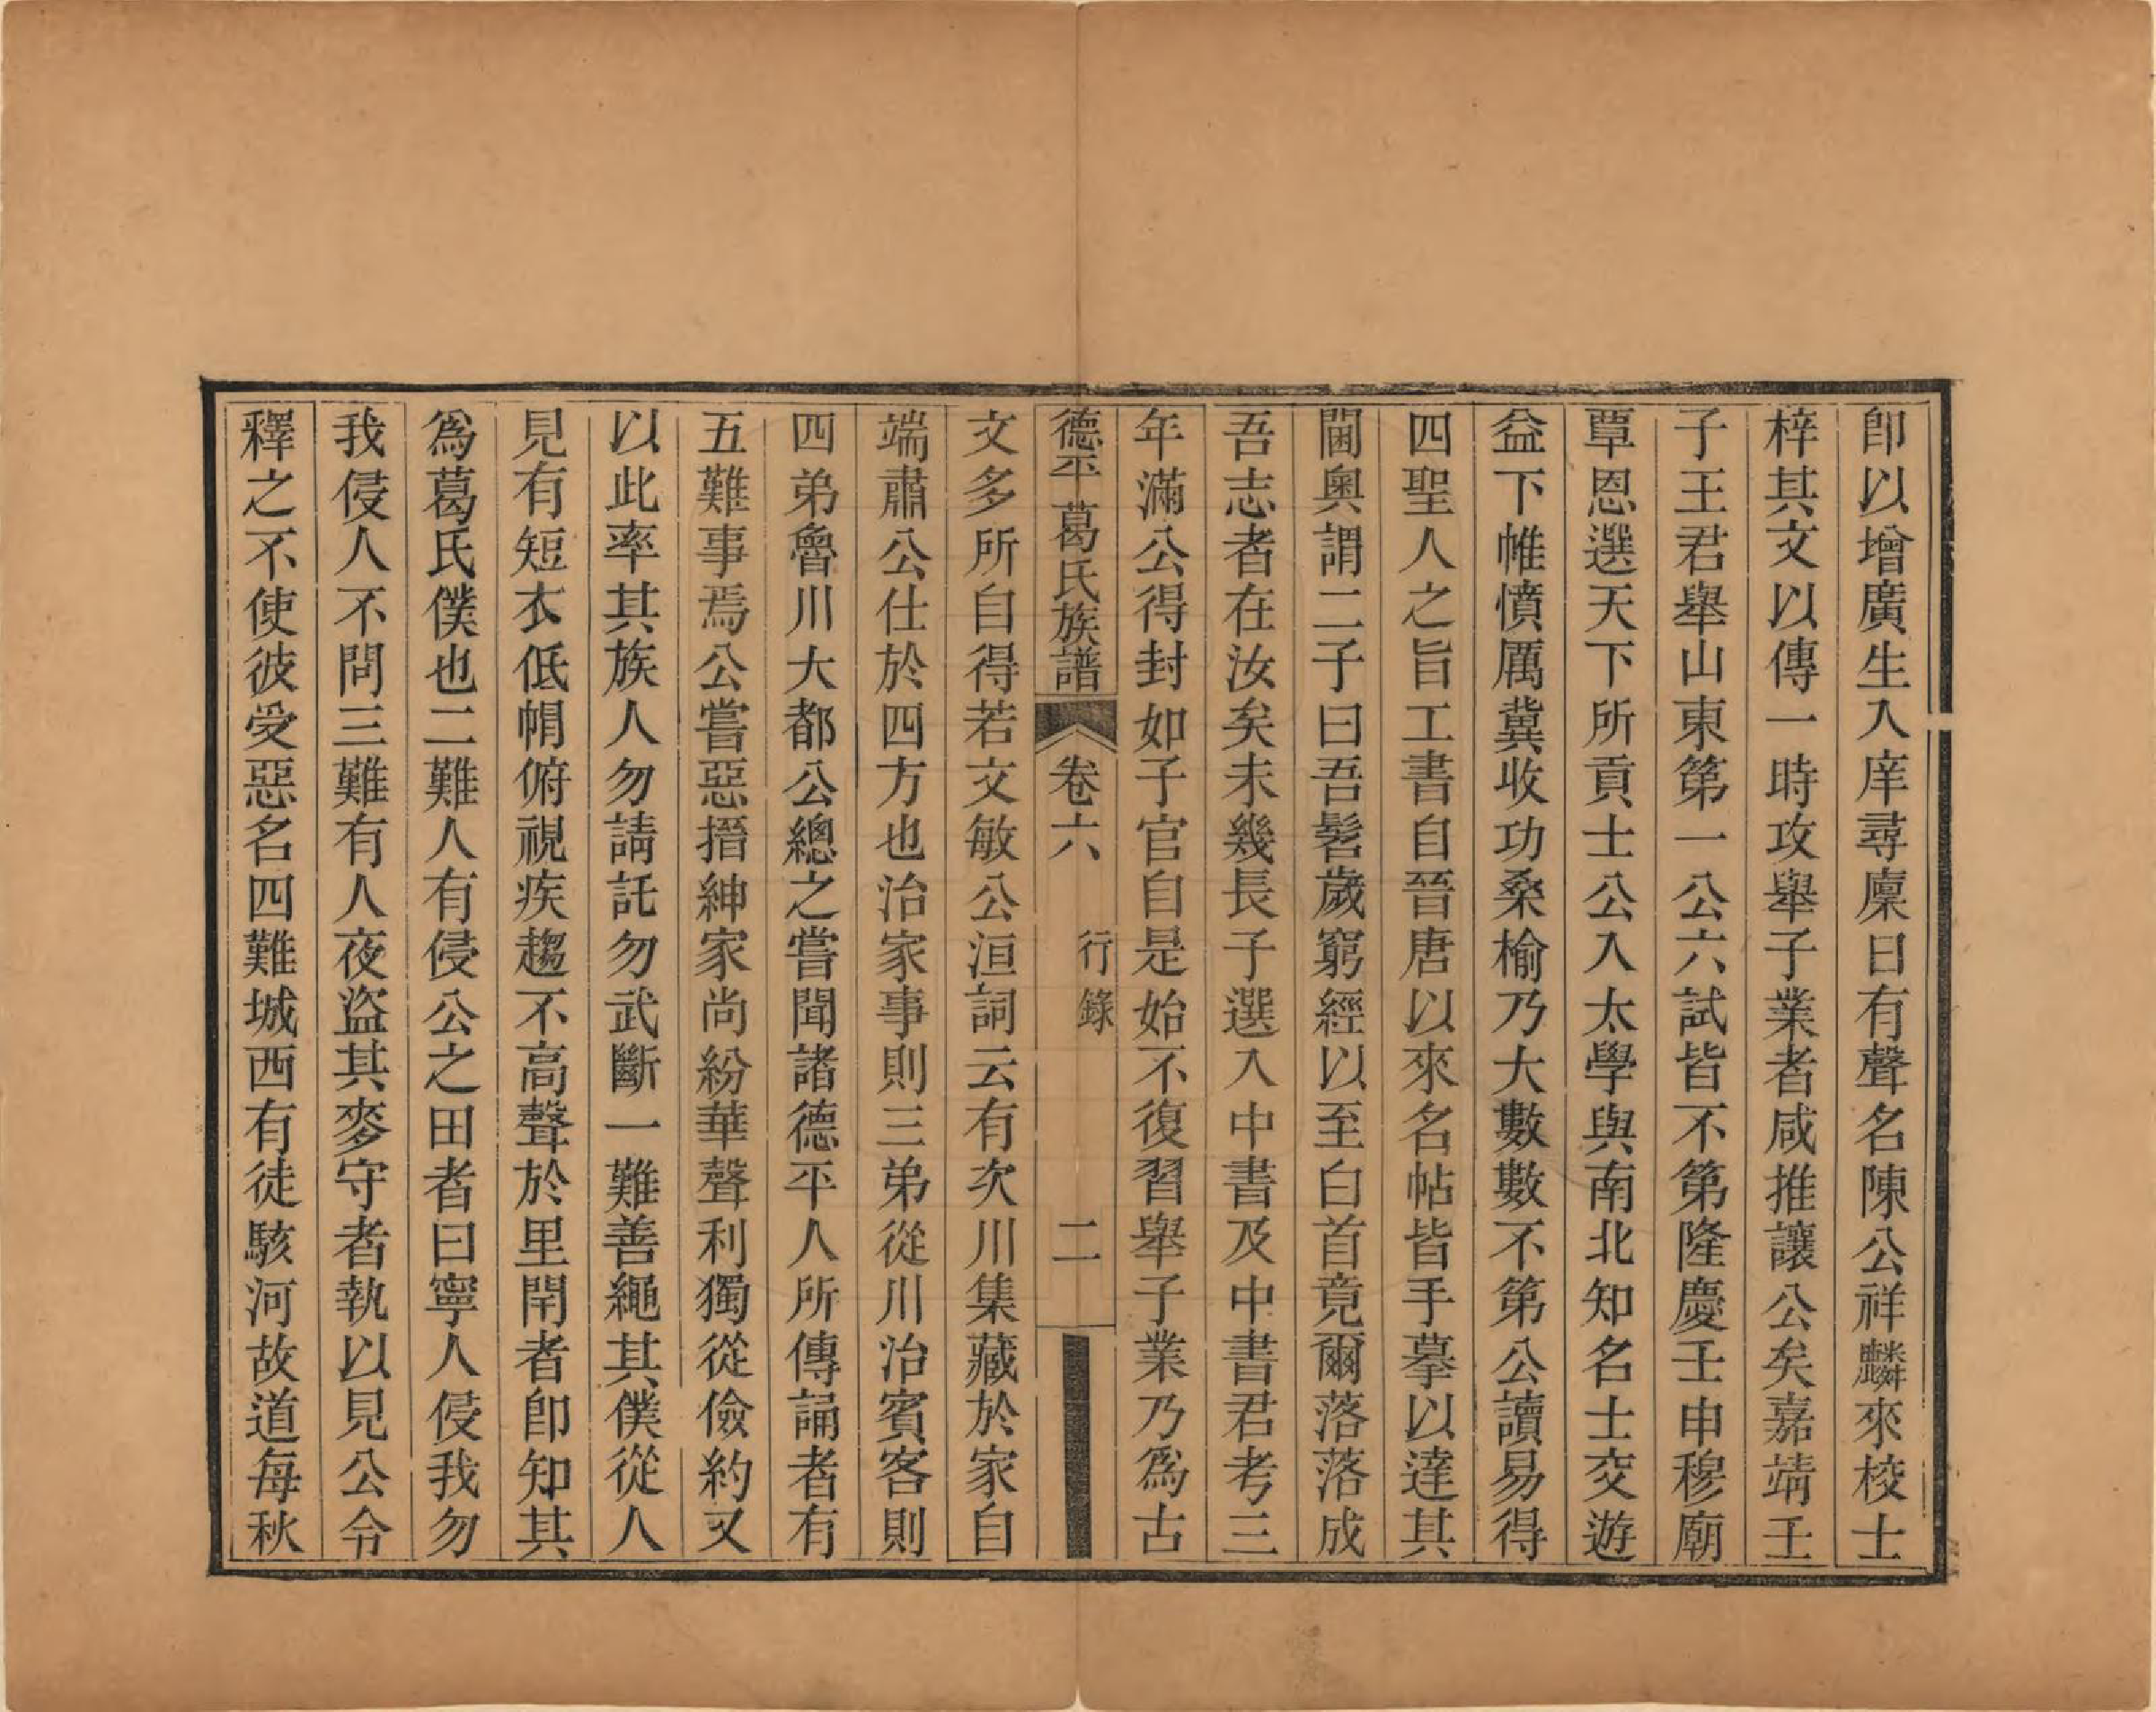 卽以增廣生入庠尋廩曰有聲名陳公祥麟來校士
梓其文以傳一時攻舉子業者咸推讓公矣嘉靖壬
子王君舉山東第一公六試皆不第隆慶壬申穆廟
覃恩選天下所貢士公入太學與南北知名士交遊
益下帷憤厲冀收功桑榆乃大數數不第公讀易得
四聖人之旨工書自晉唐以來名帖皆手摹以達其
閫奧謂二子曰吾髫歲窮經以至白首竟爾落落成
吾志者在汝矣未幾長子選入中書及中書君考三
年滿公得封如子官自是始不復習舉子業乃爲古
德平葛氏族譜 卷六 行錄 二
文多所自得若文敏公洹詞云有次川集藏於家自
端肅公仕於四方也治家事則三弟從川治賓客則
四弟魯川大都公總之嘗聞諸德平人所傳誦者有
五難事焉公嘗惡搢紳家尚紛華聲利獨從儉約又
以此率其族人勿請託勿武斷一難善繩其僕從人
見有短衣低㡌俯視疾趨不高聲於里閈者卽知其
爲葛氏僕也二難人有侵公之田者曰寧人侵我勿
我侵人不問三難有人夜盜其麥守者執以見公令
釋之不使彼受惡名四難城西有徒駭河故道每秋